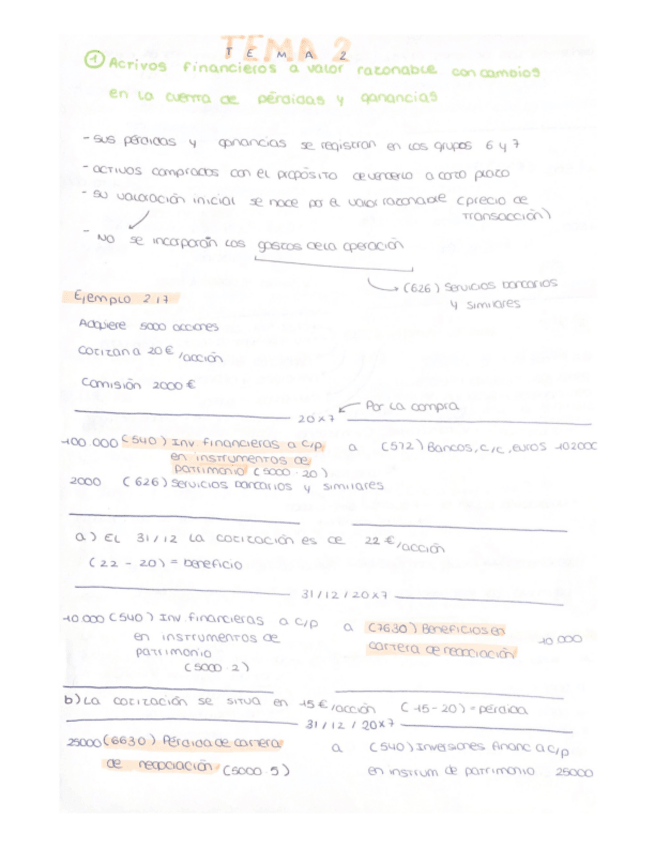 TEMA 2
T E M A 2
① Activos financieros a valor razonable con cambios
en la cuenta de pérdidas y ganancias
- sus pérdidas y ganancias se registran en los grupos 6 y 7
- activos comprados con el propósito de venderlo a corto plazo
- su valoración inicial se hace por el valor razonable (precio de
transacción)
- NO se incorporan los gastos de la operación
→ (626) Servicios bancarios
y similares
Ejemplo 2.17
Adquiere 5000 acciones
Cotizan a 20€/acción
Comisión 2000€
20x7 ← Por la compra
100 000 (540) Inv financieras a c/p a (572) Bancos, c/c, euros 102000
en instrumentos de
patrimonio (5000·20)
2000 (626) Servicios bancarios y similares
a) El 31/12 la cotización es de 22€/acción
(22-20) = beneficio
31/12/20x7
10.000 (540) Inv. financieras a c/p a (7630) Beneficios en
en instrumentos de cartera de negociación 10 000
patrimonio
(5000·2)
b) La cotización se situa en 15€/acción (15-20) = pérdida
31/12/20x7
25000 (6630) Pérdida de cartera a (540) Inversiones financ a c/p
de negociación (5000·5) en instrum de patrimonio 25000